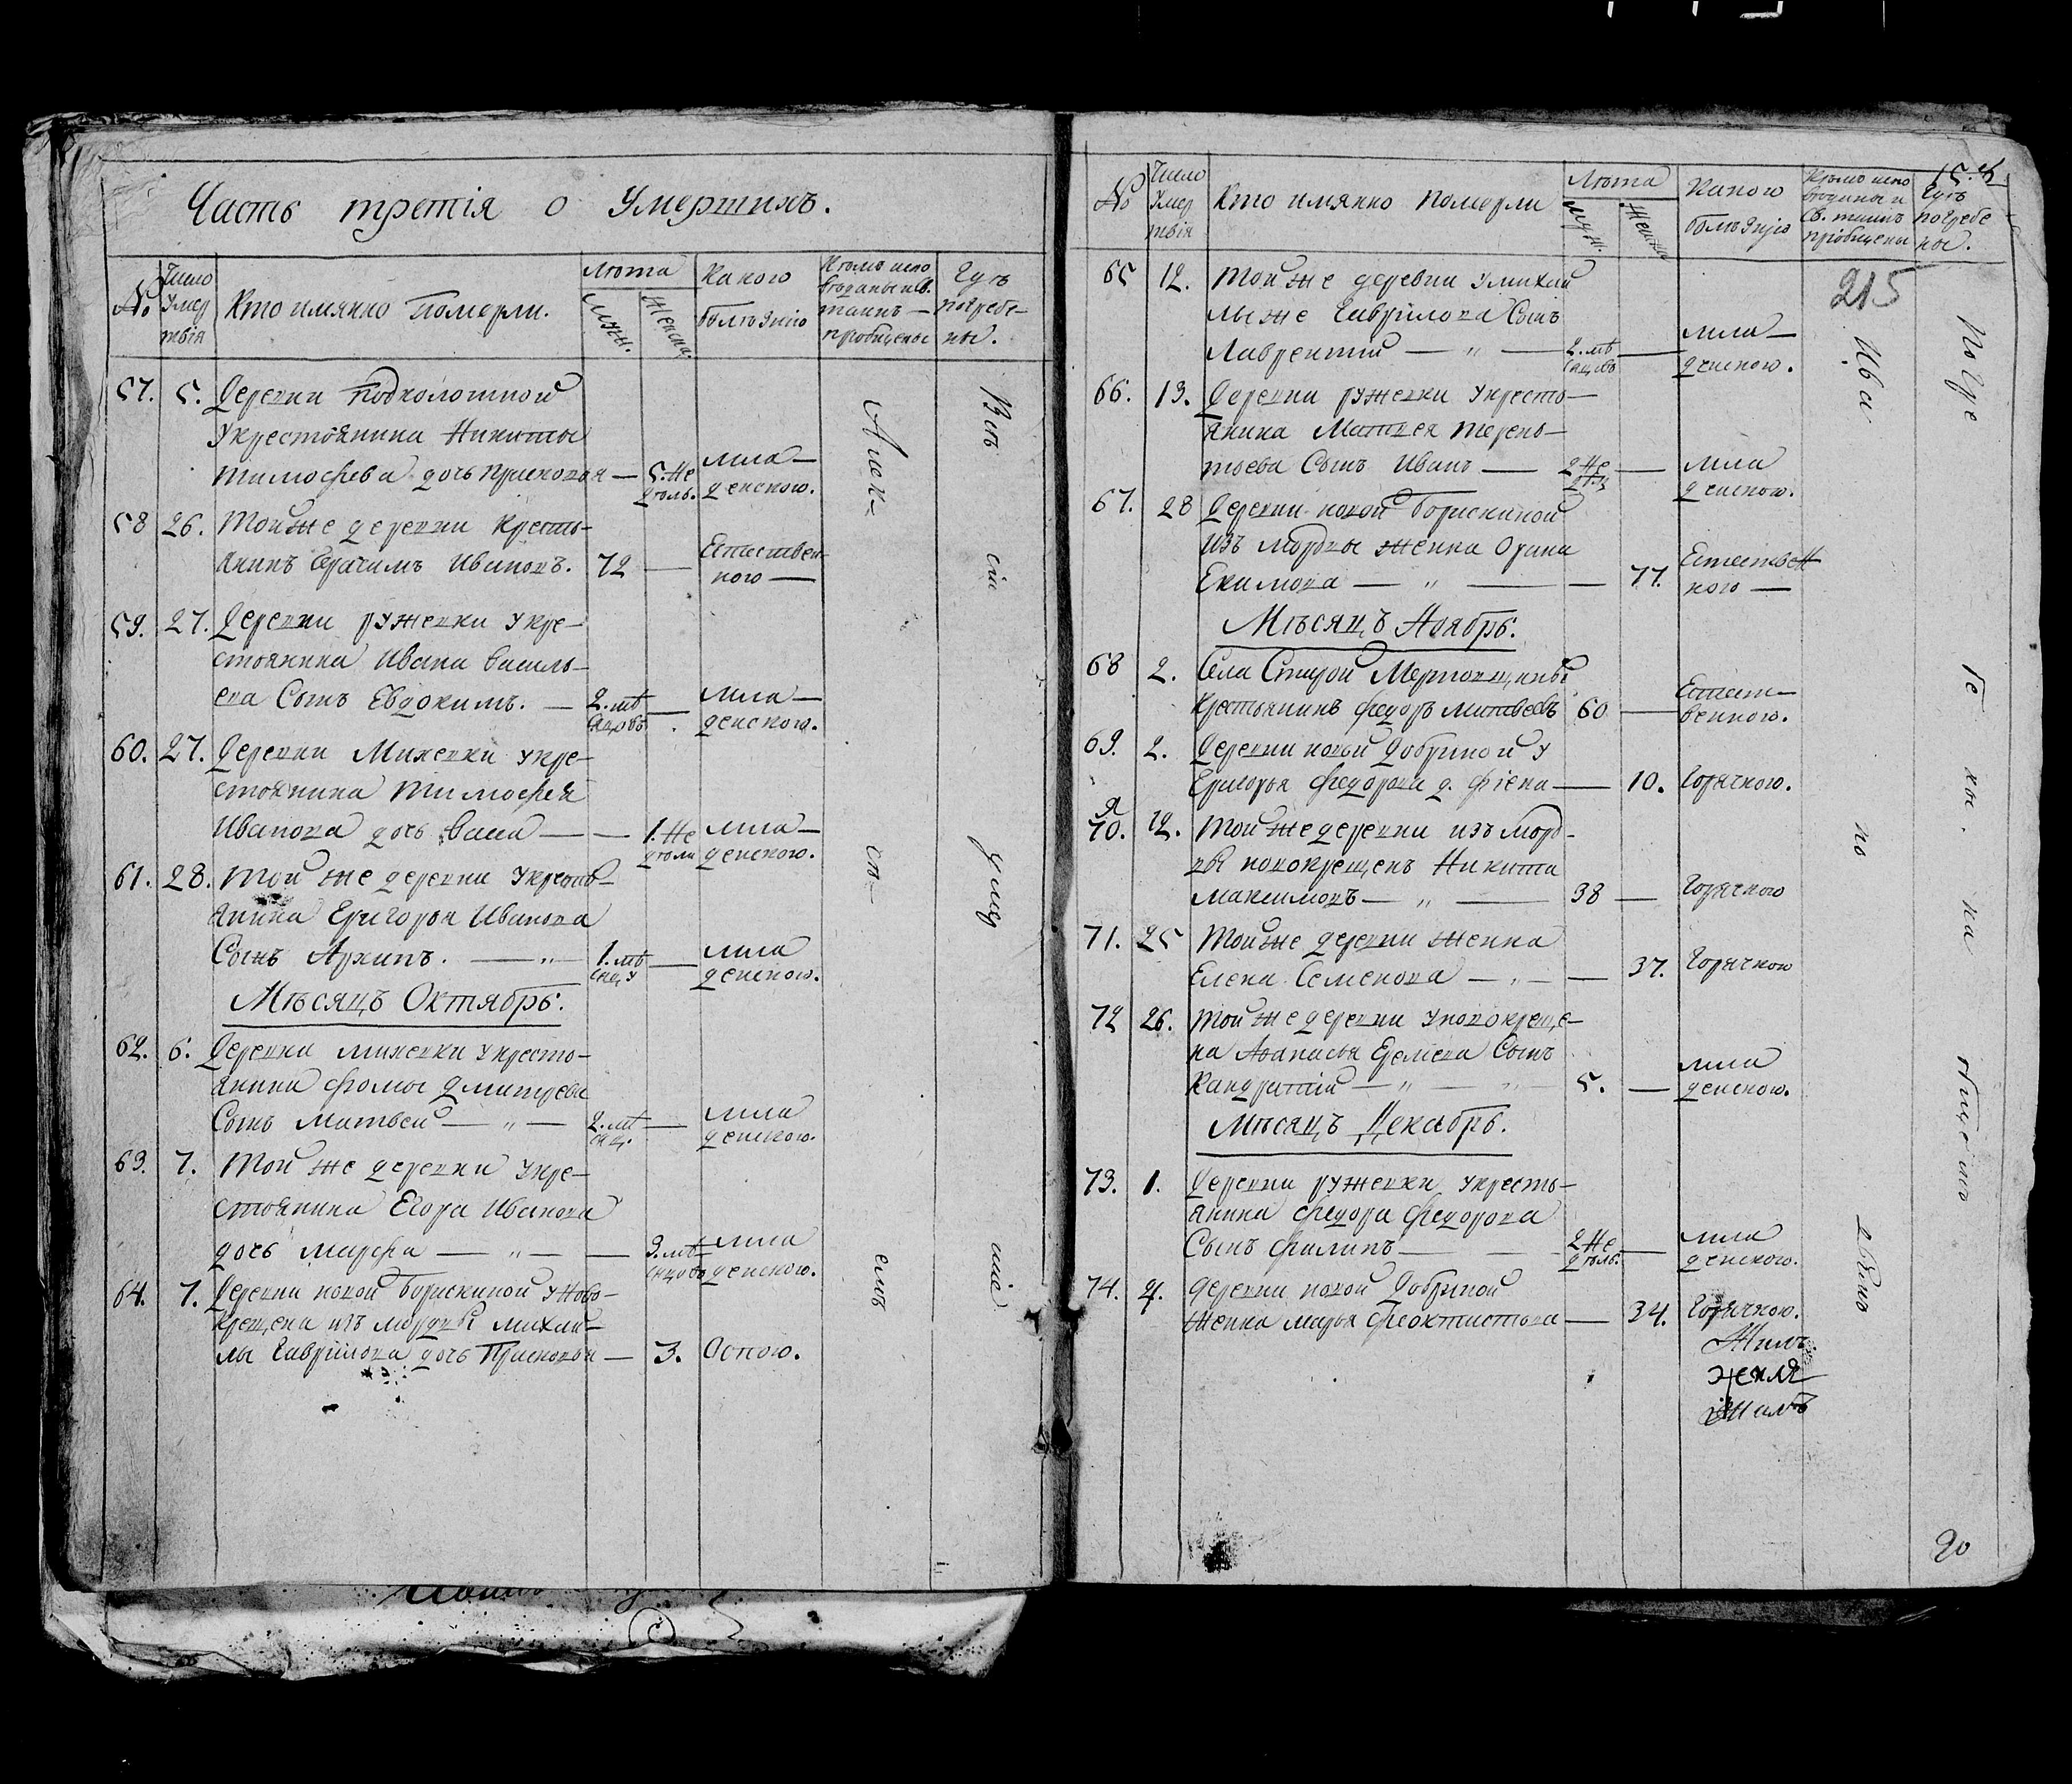 Часть третія о Умершихъ.
№
Число Умертвія
Кто имянно Померли.
Лѣта
Муж.
Женска.
Какою болѣзнію
Кѣмъ исповѣданы и С. таинъ пріобщены
Гдѣ погребены.
57. 5. Деревни Подколотной
Укрестьянина Никиты
Тимофѣева дочь Прасковья — 5. недѣль. мла—
денскою.
58 26. Той же деревни кресть—
янинъ Герасимъ Ивановъ. 72 — Естествен—
ною —
59. 27. Деревни ружевки Укре—
стьянина Ивана Василь—
ева Сынъ Евдокимъ. — 2. мѣсяцовъ — мла—
денскою.
60. 27. Деревни Михевки укре—
стьянина Тимофея
Иванова дочь Васса — — 1. недѣли мла—
денскою.
61. 28. Той же деревни Укресть—
янина Григорья Иванова
Сынъ Архипъ. — „ — 1. мѣсяцу — мла
денскою.
Мѣсяцъ Октябрь:
62. 6. Деревни михевки укресть—
янина Фомы Дмитрева
Сынъ Матвей — „ — 2. мѣсяц. — мла
денскою.
63. 7. Той же деревни укре—
стьянина Егора Иванова
дочь Марфа — „ — — 3. мѣсяцовъ мла
денскою.
64. 7. Деревни новой Борискиной у Ново—
крещена изъ мордвы михай—
лы Гаврилова дочь Прасковья — 3. Оспою.
Всѣ сіи умершіе
Алексѣемъ
№
Число Умертвія
Кто имянно Померли
Лѣта
Муж.
Женска
Какою болѣзнію
Кѣмъ исповѣданы и Св. таинъ пріобщены
Гдѣ погребены.
215
65 12. Той же деревни умихай
лы же Гаврилова Сынъ
Лаврентій — „ — 2. мѣсяцовъ — мла—
денскою.
66. 13. Деревни ружевки укресть—
янина Матвея Терень—
тьева Сынъ Иванъ — 2 недѣл — мла
денскою.
67. 28 Деревни новой Борискиной
изъ мордвы женка Орина
Екимова — „ — — 77. Естествен
ною —
Мѣсяцъ Ноябрь:
68 2. Села Старой Мертовщины
крестьянинъ федоръ Матвеевъ 60 — Естест—
венною.
69. 2. Деревни новой Добриной у
Григорья Федорова д. Фіена — 10. Горячкою.
70. 12. Той же деревни изъ морд—
вы новокрещенъ Никита
Максимовъ — „ — 38 — Горячкою
71. 25 Той же деревни женка
Елена Семенова — „ — — 37. Горячкою
72 26. Той же деревни уновокреще—
на Афанасья Еремева Сынъ
Кандратій — „ — „ 5. — мла
денскою.
Мѣсяцъ Декабрь.
73. 1. Деревни ружевки укресть—
янина Федора Федорова
Сынъ Филипъ — — 2 недѣль. — мла
денскою.
74. 4. деревни новой Добриной
женка Марья Феоктистова — 34. Горячкою.
Ива но
Погребены. на общемъ
20